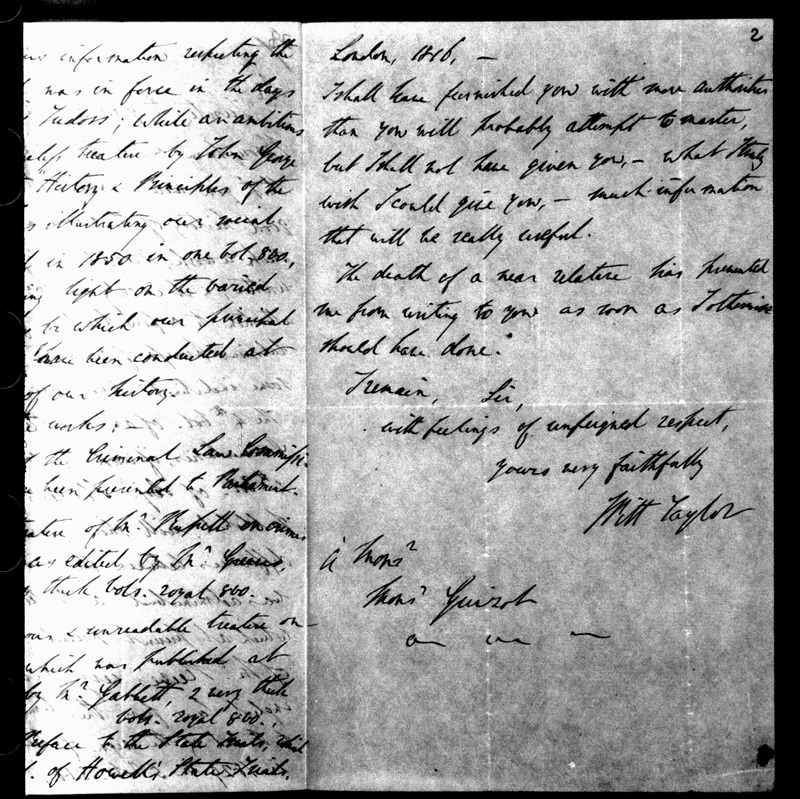 information respecting the
was in force in the days
Tudors; while an ambitious
treatise by John George
"History & Principles of the
illustrating our social
in 1850 in one vol. 8vo.,
light on the varied
by which our principal
have been conducted at
of our history.
works: —
the Criminal Law Commiss-
been presented to Parliament.
of Mr. Russell on crimes
as edited by Mr. Greaves,
thick vols. royal 8vo.
& unreadable treatise on
which was published at
by Mr. Gabbett, 2 very thick
vols. royal 8vo.,
Preface to the State Trials, which
of Howell's State Trials,
2
London, 1816, —
I shall have furnished you with more authorities
than you will probably attempt to master,
but I shall not have given you, — what I truly
wish I could give you, — much information
that will be really useful.
The death of a near relative has prevented
me from writing to you as soon as I otherwise
should have done.
I remain, Sir,
with feelings of unfeigned respect,
yours very faithfully
Witt Taylor
à Monsr
Monsr Guizot